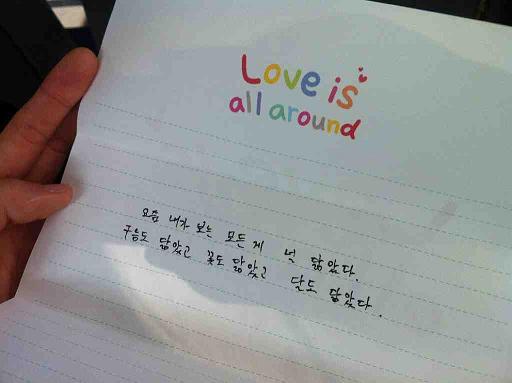 Love is
all around
요즘 내가 보는 모든 게 넌 닮았다.
구름도 닮았고 꽃도 닮았고 달도 닮았다.